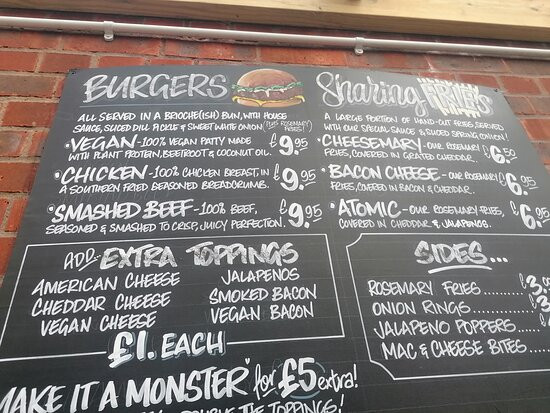 BURGERS
ALL SERVED IN A BRIOCHE(ISH) BUN, WITH HOUSE
SAUCE, SLICED DILL PICKLE & SWEET WHITE ONION (PLUS ROSEMARY FRIES!)
• VEGAN - 100% VEGAN PATTY MADE £9.95
WITH PLANT PROTEIN, BEETROOT & COCONUT OIL.
• CHICKEN - 100% CHICKEN BREAST, IN £9.95
A SOUTHERN FRIED SEASONED BREADCRUMB.
• SMASHED BEEF - 100% BEEF, £9.95
SEASONED & SMASHED TO CRISP, JUICY PERFECTION.
ADD EXTRA TOPPINGS
AMERICAN CHEESE
CHEDDAR CHEESE
VEGAN CHEESE
JALAPENOS
SMOKED BACON
VEGAN BACON
£1. EACH
MAKE IT A MONSTER" for £5 extra!
DOUBLE THE TOPPINGS!
Sharing FRIES
A LARGE PORTION OF HAND-CUT FRIES, SERVED
WITH OUR SPECIAL SAUCE & SLICED SPRING ONION!
• CHEESEMARY - OUR ROSEMARY £6.50
FRIES, COVERED IN GRATED CHEDDAR.
• BACON CHEESE - OUR ROSEMARY £6.95
FRIES, COVERED IN BACON & CHEDDAR.
• ATOMIC - OUR ROSEMARY FRIES, £6.95
COVERED IN CHEDDAR & JALAPENOS.
SIDES...
ROSEMARY FRIES...... £3.
ONION RINGS
JALAPENO POPPERS
MAC & CHEESE BITES